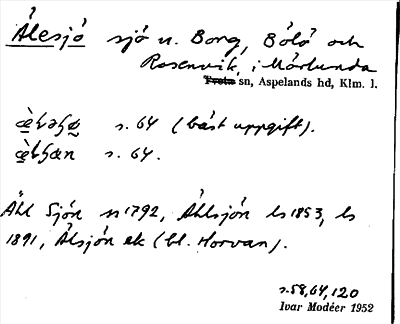 Ålesjö sjö n. Borg, Bölö och
Rosenvik, i Mörlunda
Tveta sn, Aspelands hd, Klm. l.
s. 64 (bäst uppgift).
s. 64.
Åhl Sjön n 1792, Åhlsjön ls 1853, ls
1891, Ålsjön ek (bl. Horvan).
s. 58, 64, 120
Ivar Modéer 1952